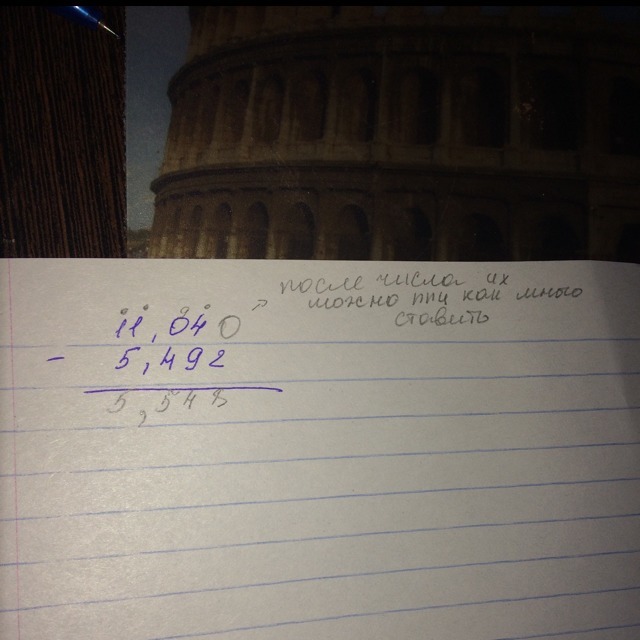 после числа их
можно ппц как много
ставить
11,040
-
5,492
5,548